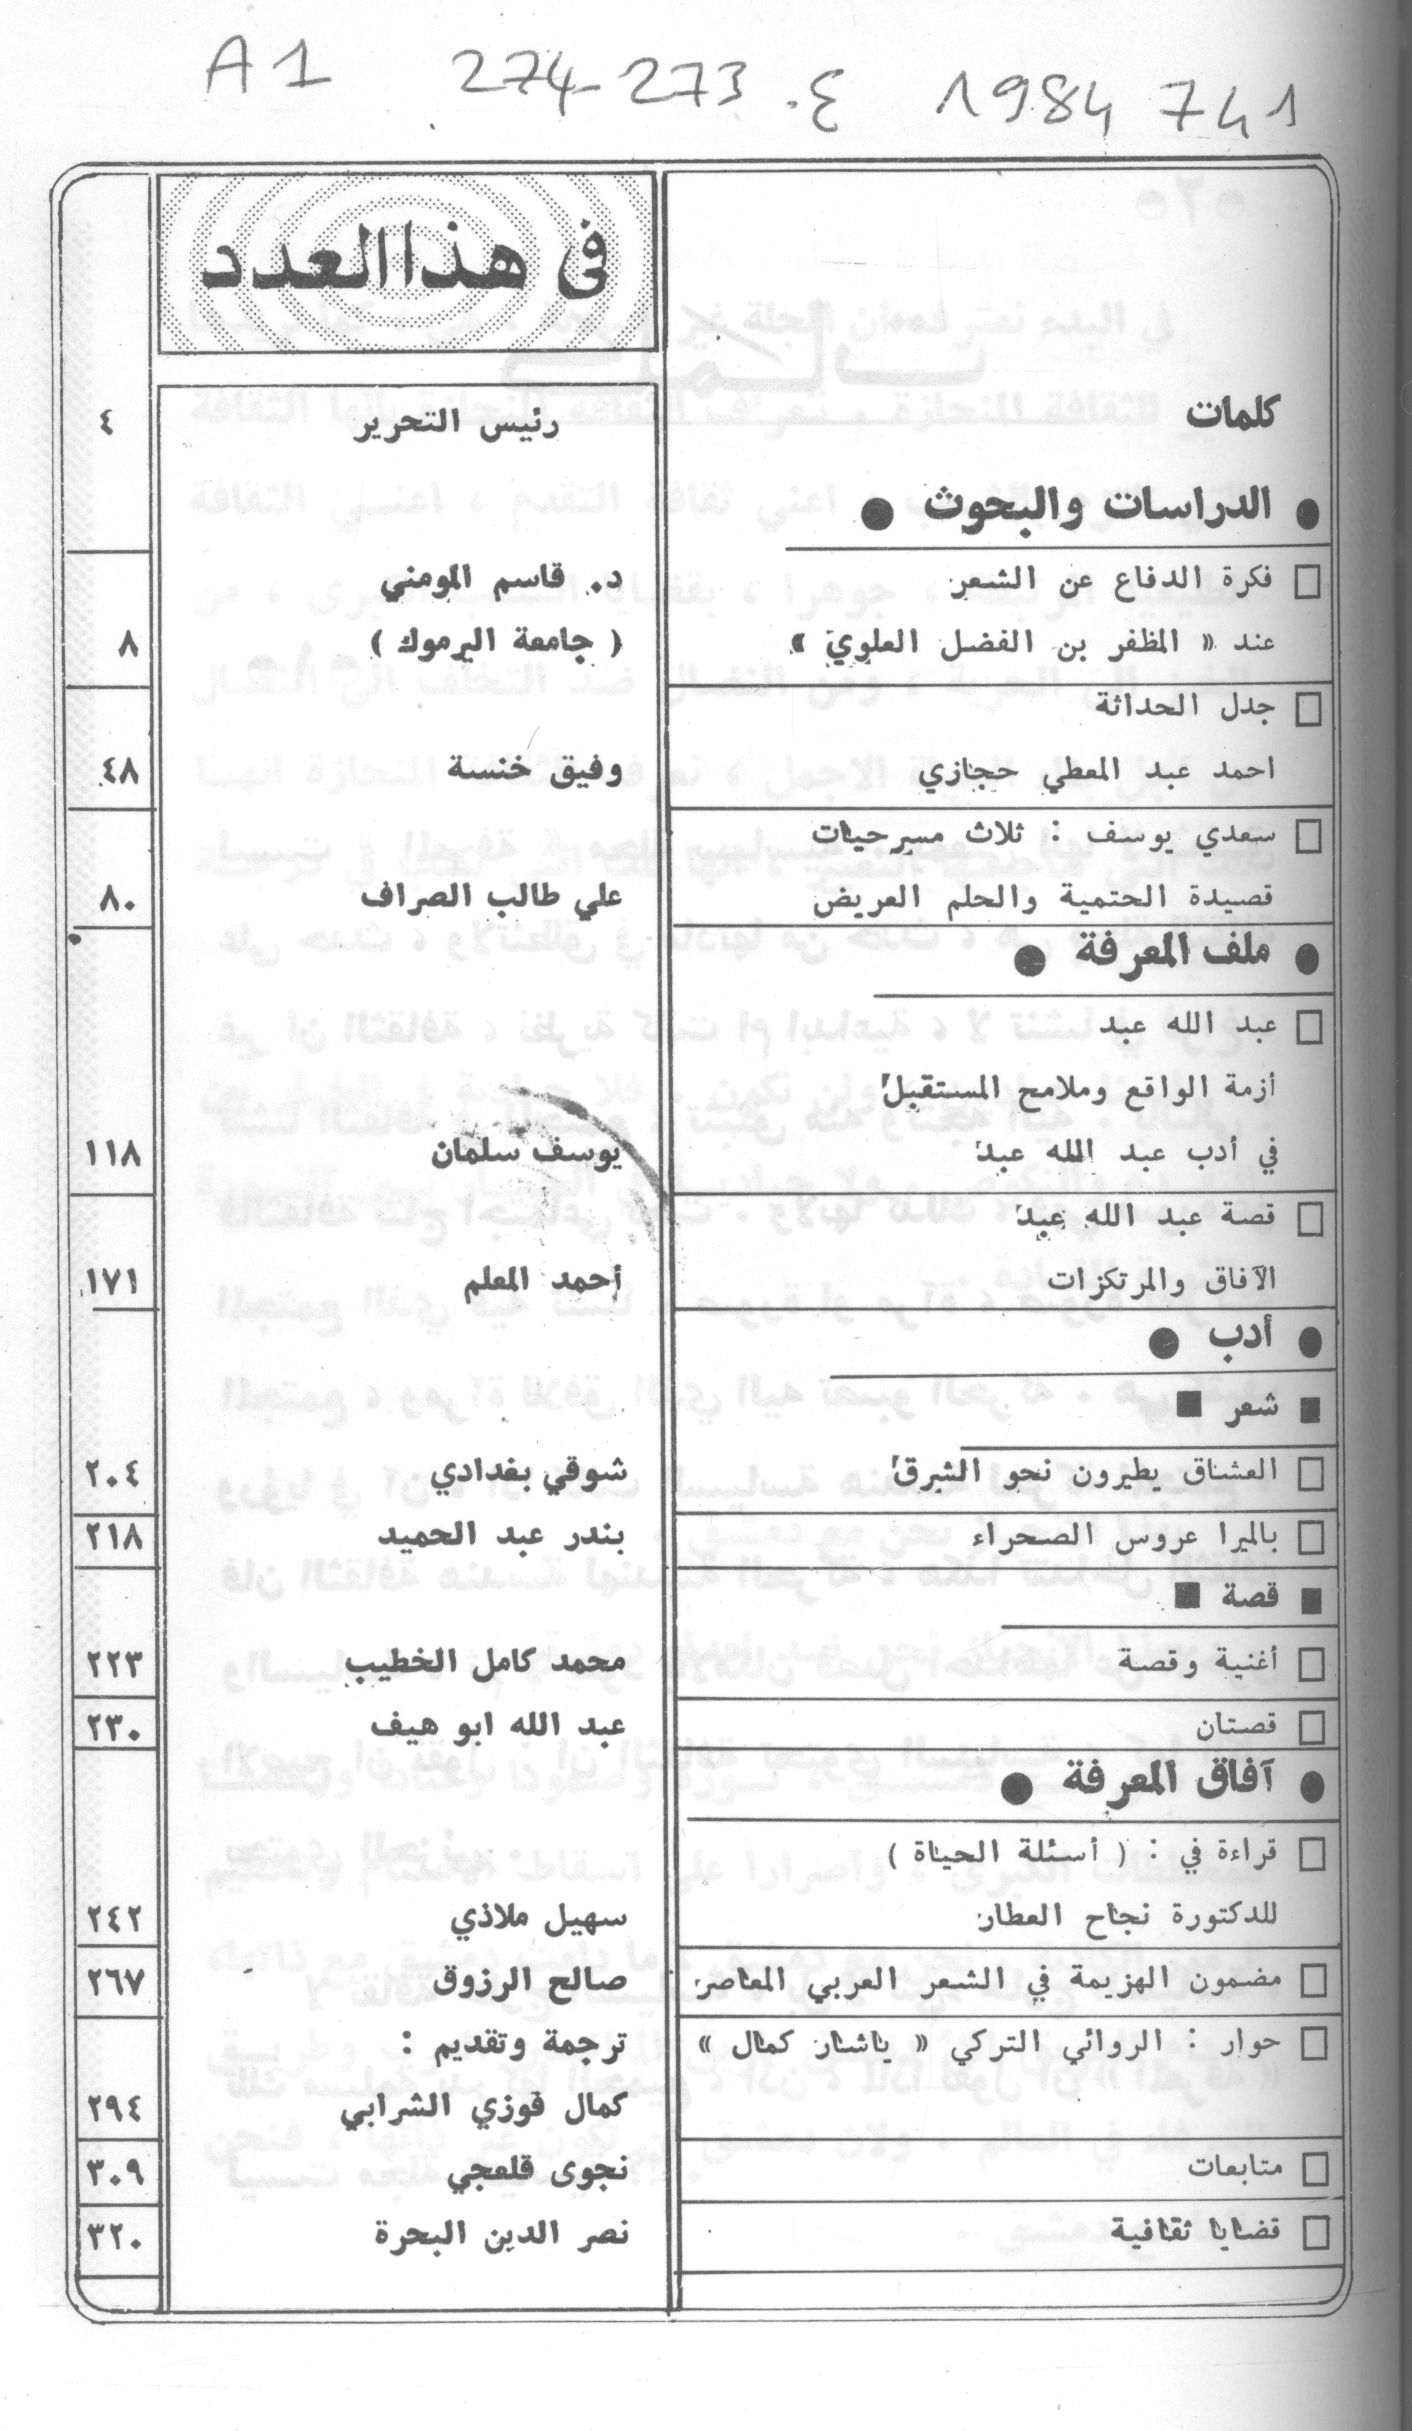 A1 274-273 .ع 1984 741
في هذا العدد
كلمات رئيس التحرير ٤
● الدراسات والبحوث ●
□ فكرة الدفاع عن الشعر د. قاسم المومني
عند « المظفر بن الفضل العلوي » ( جامعة اليرموك ) ٨
□ جدل الحداثة
احمد عبد المعطي حجازي وفيق خنسة ٤٨
□ سعدي يوسف : ثلاث مسرحيات
قصيدة الحتمية والحلم العريض علي طالب الصراف ٨٠
● ملف المعرفة ●
□ عبد الله عبد
أزمة الواقع وملامح المستقبل
في أدب عبد الله عبد يوسف سلمان ١١٨
□ قصة عبد الله عبد
الآفاق والمرتكزات أحمد المعلم ١٧١
● أدب ●
■ شعر ■
□ العشاق يطيرون نحو الشرق شوقي بغدادي ٢٠٤
□ بالميرا عروس الصحراء بندر عبد الحميد ٢١٨
■ قصة ■
□ أغنية وقصة محمد كامل الخطيب ٢٢٣
□ قصتان عبد الله ابو هيف ٢٣٠
● آفاق المعرفة ●
□ قراءة في : ( أسئلة الحياة )
للدكتورة نجاح العطار سهيل ملاذي ٢٤٢
□ مضمون الهزيمة في الشعر العربي المعاصر صالح الرزوق ٢٦٧
□ حوار : الروائي التركي « ياشار كمال » ترجمة وتقديم :
كمال فوزي الشرابي ٢٩٤
□ متابعات نجوى قلعجي ٣٠٩
□ قضايا ثقافية نصر الدين البحرة ٣٢٠